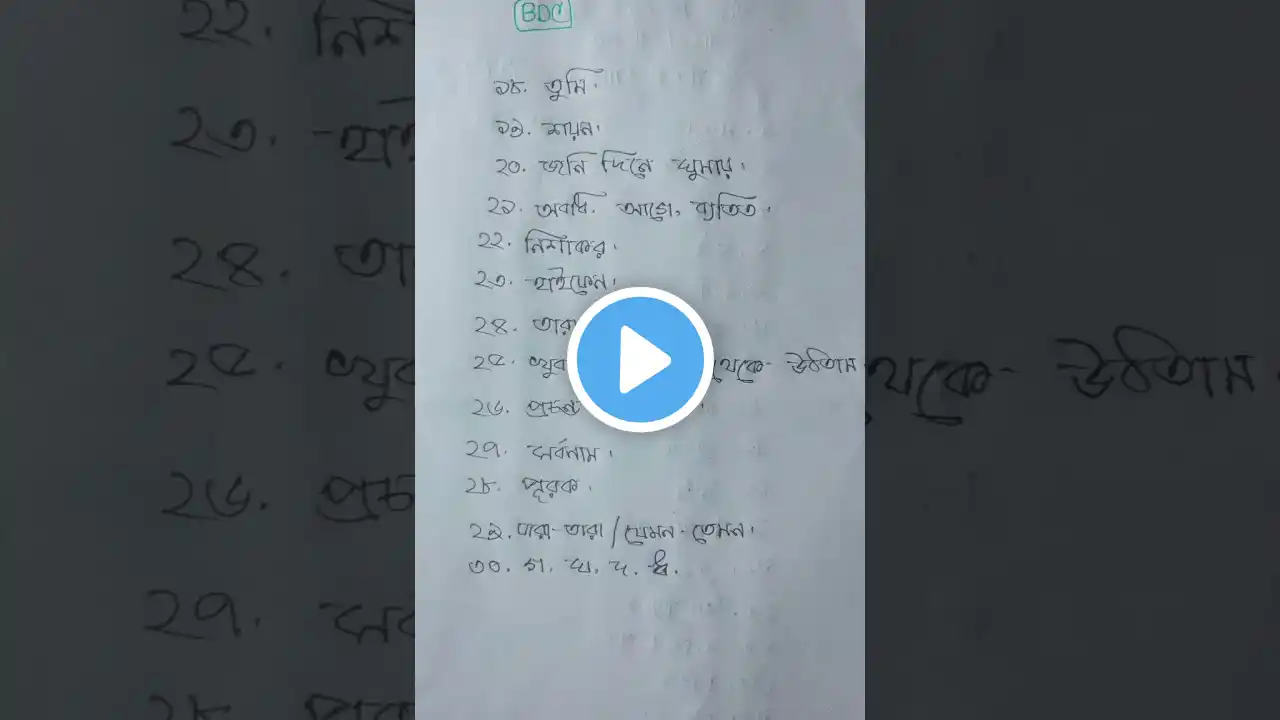 BDC
১৮. তুমি.
১৯. শয়ন.
২০. জনি দিনে ঘুমায়.
২১. অবধি. আগে, ব্যতিত.
২২. নিশাকর.
২৩. হাইফেন.
২৪. তারা
২৫. থেকে- উঠিতাম
২৬. প্রচণ্ড
২৭. সর্বনাম.
২৮. পূরক.
২৯. যারা-তারা/যেমন-তেমন.
৩০. গ. ঘ. দ. ধ.